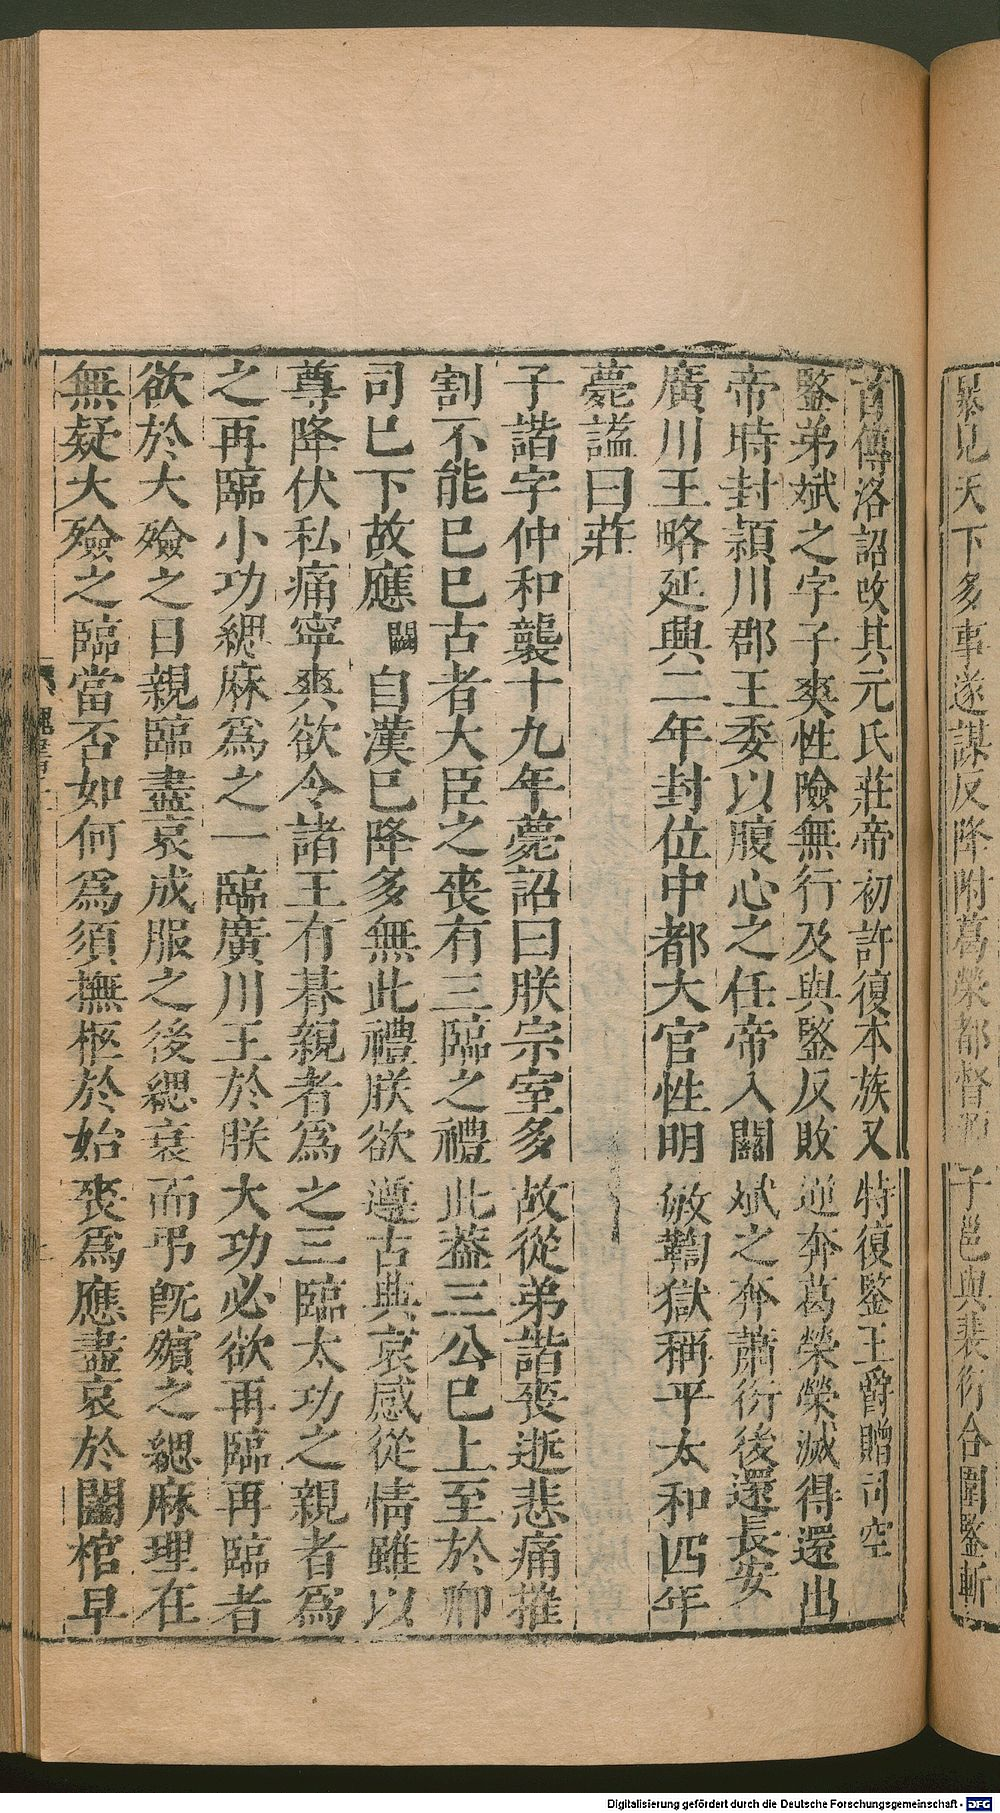 暴見天下多事遂謀反降附葛榮都督源子邕與裴衍合圍鑒斬
首傳洛詔改其元氏莊帝初許復本族又特復鑒王爵贈司空
鑒弟斌之字子爽性險無行及與鑒反敗遁奔葛榮榮滅得還出
帝時封潁川郡王委以腹心之任帝入關斌之奔蕭衍後還長安
廣川王略延興二年封位中都大官性明敏鞫獄稱平太和四年
薨謚曰莊
子諧字仲和襲十九年薨詔曰朕宗室多故從弟諧喪逝悲痛摧
割不能已已古者大臣之喪有三臨之禮此葢三公已上至於卿
司已下故應闕自漢已降多無此禮朕欲遵古典哀感從情雖以
尊降伏私痛寧爽欲令諸王有朞親者爲之三臨大功之親者爲
之再臨小功緦麻爲之一臨廣川王於朕大功必欲再臨再臨者
欲於大殮之日親臨盡哀成服之後緦衰而弔旣殯之緦麻理在
無疑大殮之臨當否如何爲須撫柩於始喪爲應盡哀於闔棺早
Digitalisierung gefördert durch die Deutsche Forschungsgemeinschaft - DFG